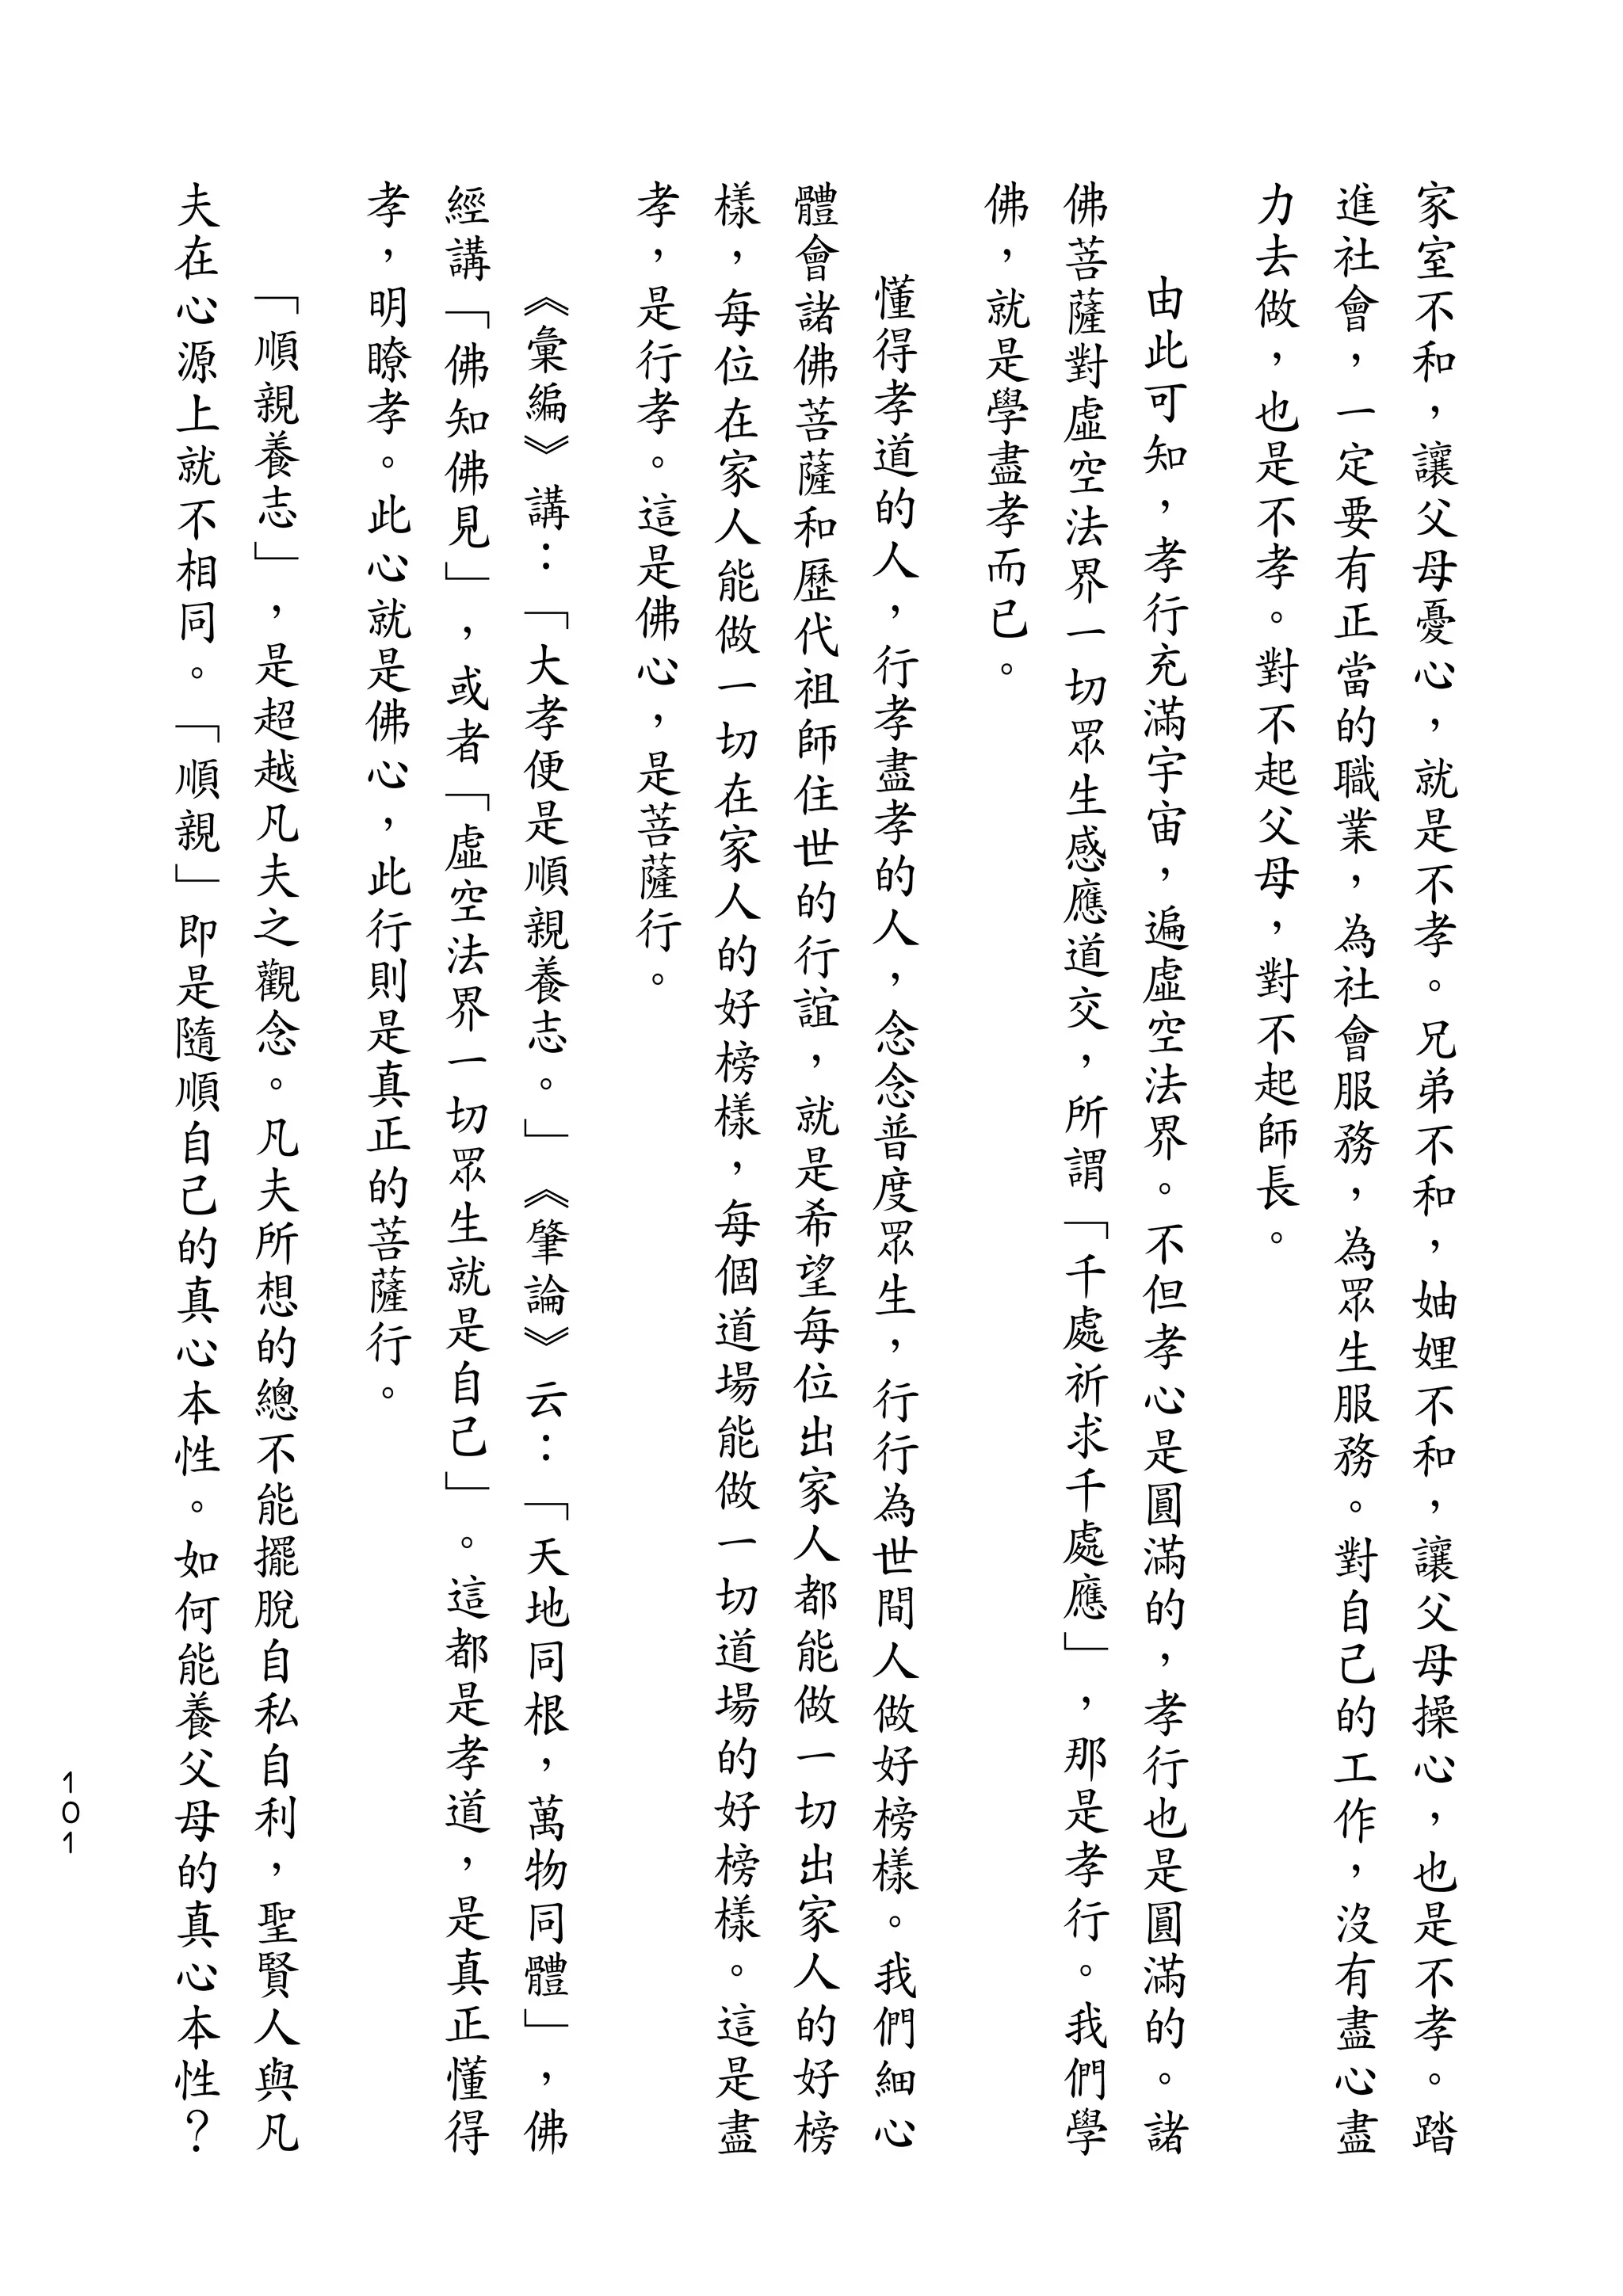 家室不和，讓父母憂心，就是不孝。兄弟不和，妯娌不和，讓父母操心，也是不孝。踏
進社會，一定要有正當的職業，為社會服務，為眾生服務。對自己的工作，沒有盡心盡
力去做，也是不孝。對不起父母，對不起師長。
由此可知，孝行充滿宇宙，遍虛空法界。不但孝心是圓滿的，孝行也是圓滿的。諸
佛菩薩對虛空法界一切眾生感應道交，所謂「千處祈求千處應」，那是孝行。我們學
佛，就是學盡孝而已。
懂得孝道的人，行孝盡孝的人，念念普度眾生，行行為世間人做好榜樣。我們細心
體會諸佛菩薩和歷代祖師住世的行誼，就是希望每位出家人都能做一切出家人的好榜
樣，每位在家人能做一切在家人的好榜樣，每個道場能做一切道場的好榜樣。這是盡
孝，是行孝。這是佛心，是菩薩行。
《彙編》講：「大孝便是順親養志。」《肇論》云：「天地同根，萬物同體」，佛
經講「佛知佛見」，或者「虛空法界一切眾生就是自己」。這都是孝道，是真正懂得
孝，明瞭孝。此心就是佛心，此行則是真正的菩薩行。
「順親養志」，是超越凡夫之觀念。凡夫所想的總不能擺脫自私自利，聖賢人與凡
夫在心源上就不相同。「順親」即是隨順自己的真心本性。如何能養父母的真心本性？
101